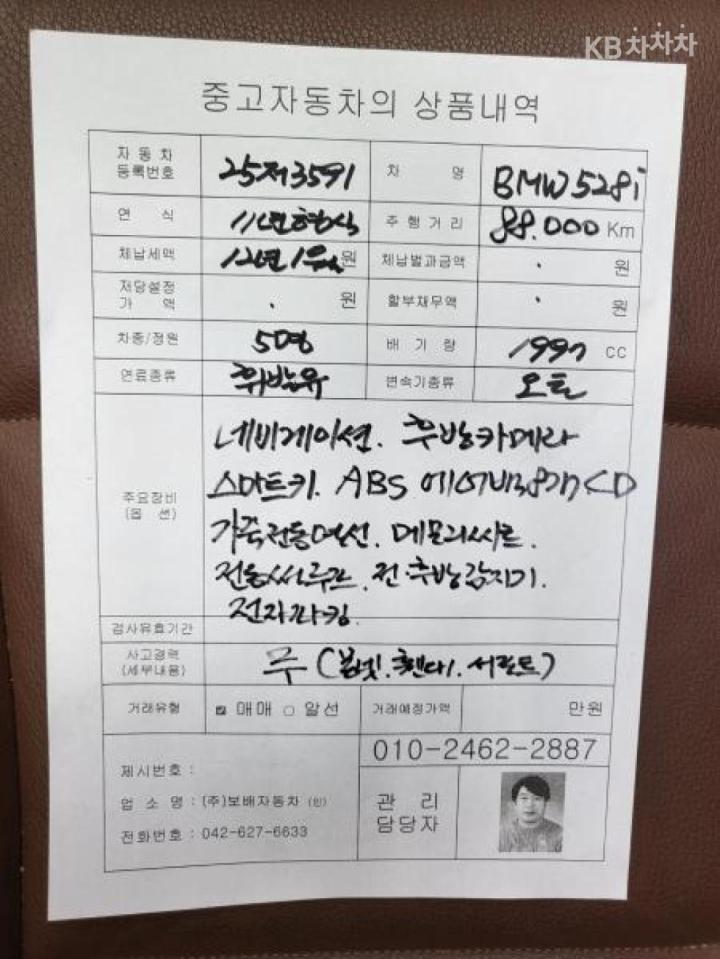 KB차차차
중고자동차의 상품내역
자동차 등록번호 25저3591 차 명 BMW 528i
연 식 11년형식 주행거리 88.000 Km
체납세액 12년1월 원 체납벌과금액 . 원
저당설정 가 액 . 원 할부채무액 . 원
차종/정원 5명 배 기 량 1997 cc
연료종류 휘발유 변속기종류 오토
주요장비 (옵 션)
네비게이션. 후방카메라
스마트키. ABS 에어백8개 CD
가죽전동열선. 메모리시트.
전동썬루프. 전.후방감지기.
전자파킹.
검사유효기간
사고경력 (세부내용) 무 (본넷. 휀다1. 서포트)
거래유형 매매 알선 거래예정가액 만원
010-2462-2887
제시번호 :
업 소 명 : (주)보배자동차 (인)
전화번호 : 042-627-6633
관 리 담당자